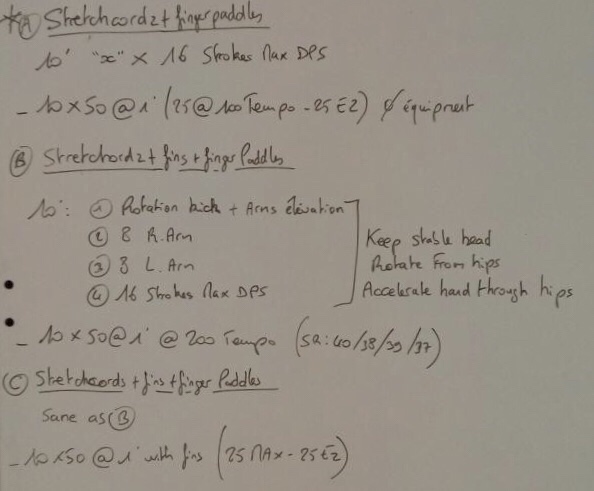 *Ⓐ Stretchcordz + fingerpaddles
10' "x" × 16 Strokes Max DPS
- 10 x 50 @ 1' (25 @ 100 Tempo - 25 EZ) Ø équipment
Ⓑ Stretchcordz + fins + finger Paddles
10' : ① Rotation kick + Arms élévation
② 8 R. Arm
③ 8 L. Arm
④ 16 Strokes Max DPS
Keep stable head
Rotate From hips
Accelerate hand through hips
- 10 x 50 @ 1' @ 200 Tempo (SR : 40/38/39/37)
Ⓒ Stretchcords + fins + finger Paddles
Same as Ⓑ
- 10 x 50 @ 1' with fins (25 MAX - 25 EZ)